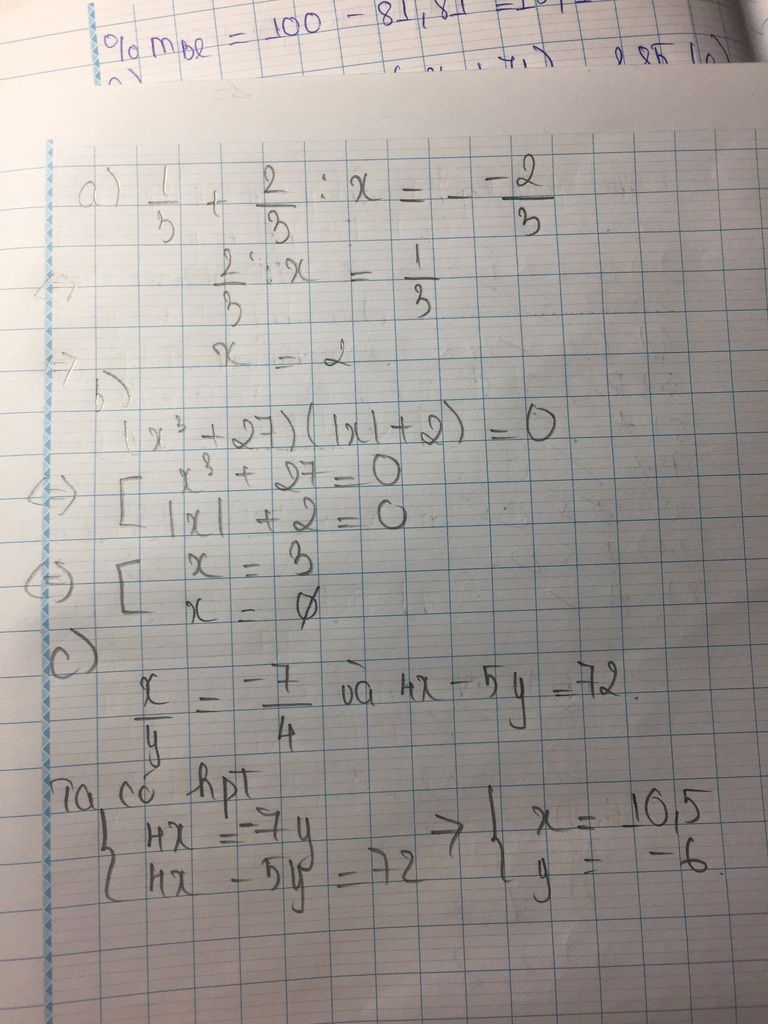 % mBe = 100 - 81,81 =
a) 1/3 + 2/3 : x = - -2/3
<=> 2/3 : x = 1/3
=> x = 2
b)
(x³ + 27)(|x| + 2) = 0
<=> [ x³ + 27 = 0
|x| + 2 = 0
<=> [ x = 3
x = ∅
c)
x/y = -7/4 và 4x - 5y = 72.
Ta có hpt
{ 4x = -7y => { x = 10,5
4x - 5y = 72 y = -6